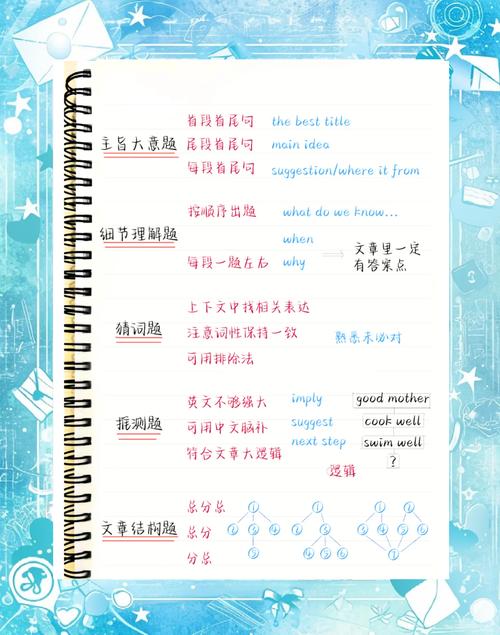 主旨大意题
首段首尾句 the best title
尾段首尾句 main idea
每段首尾句 suggestion/where it from
细节理解题
按顺序出题 what do we know...
when
每段一题左右 why
文章里一定
有答案点
猜词题
上下文中找相关表达
注意词性保持一致
可用排除法
熟悉未必对
推测题
英文不够强大 imply
可用中文脑补 suggest
符合文章大逻辑 next step
good mother
cook well
swim well
?
逻辑
文章结构题
总分总
总分
分总
① ② ③ ④ ⑤
① ② ③ ④ ⑤ ⑥
① ② ③ ④ ⑤ ⑥ ①